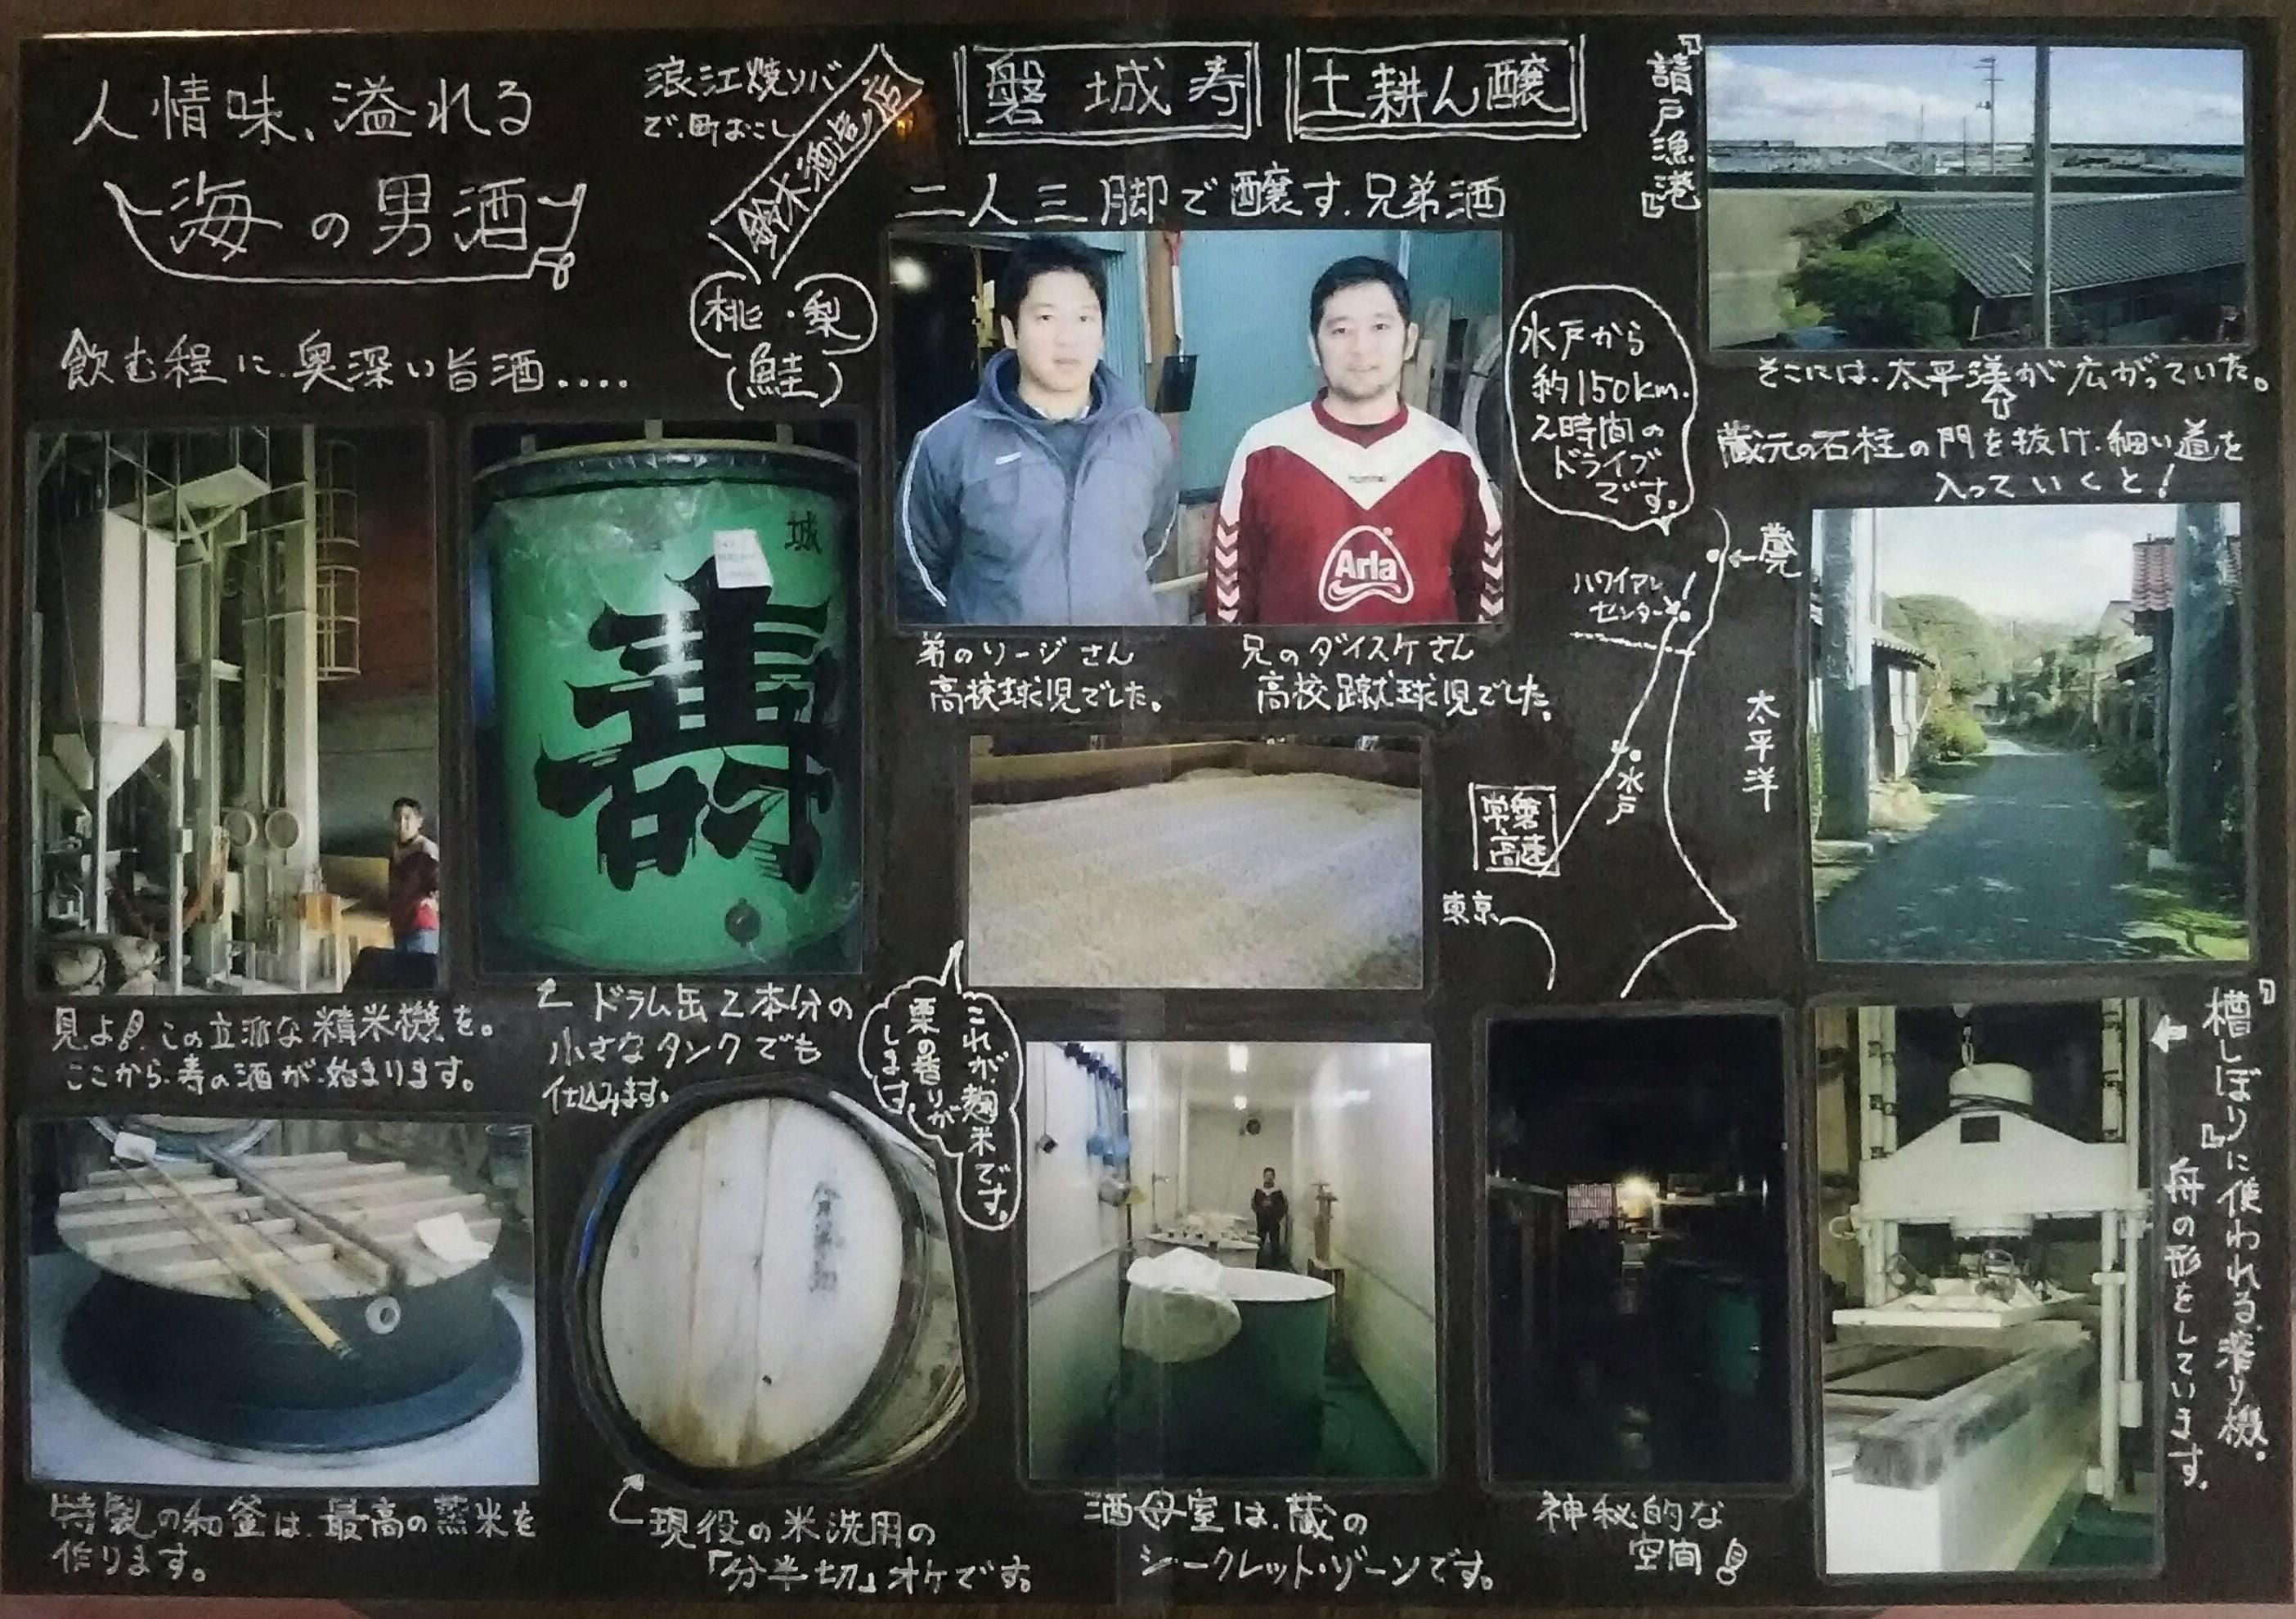 人情味、溢れる
海の男酒
飲む程に、奥深い旨酒‥‥
浪江焼ソバ
で、町おこし
鈴木酒造店
桃・梨
(鮭)
磐城寿
土耕ん醸
二人三脚で醸す、兄弟酒
Arla
弟のソージさん
高校球児でした。
兄のダイスケさん
高校蹴球児でした。
『請戸漁港』
そこには、太平洋が広がっていた。
蔵元の石柱の門を抜け、細い道を
入っていくと!
水戸から
約150km.
2時間の
ドライブ
です。
蔵元
ハワイアン
センター
太平洋
水戸
常磐
高速
東京
城
寿
見よ!この立派な精米機を。
ここから、寿の酒が、始まります。
ドラム缶2本分の
小さなタンクでも
仕込みます。
これが、麹米です。
栗の香りが
します。
特製の和釜は、最高の蒸米を
作ります。
現役の米洗用の
「分半切」オケです。
酒母室は、蔵の
シークレット・ゾーンです。
神秘的な
空間!
『槽しぼり』に使われる、搾り機。
舟の形をしています。